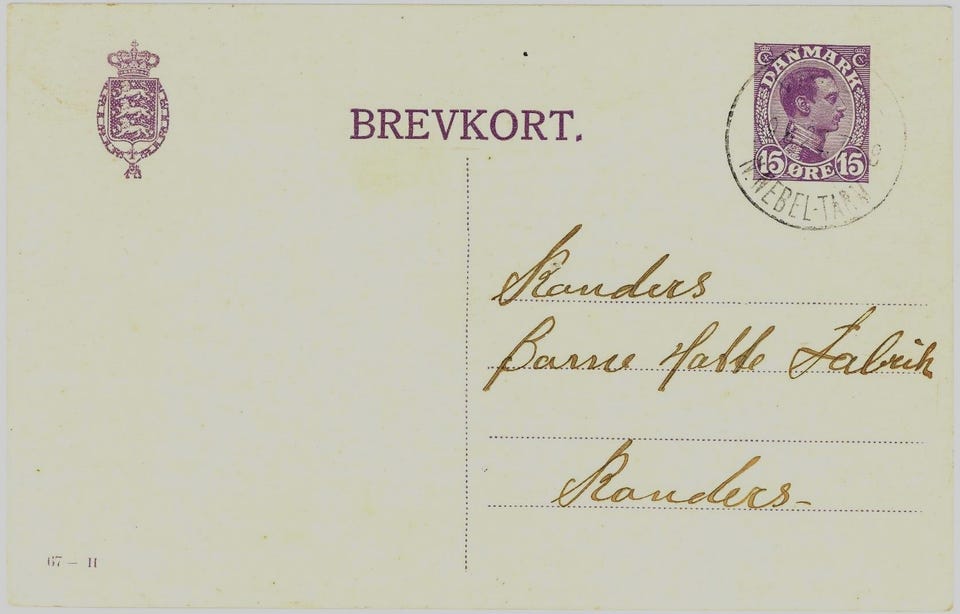 BREVKORT.
C C
DANMARK
15 ØRE 15
Randers
Børne Hatte Fabrik
Randers-
67 – H